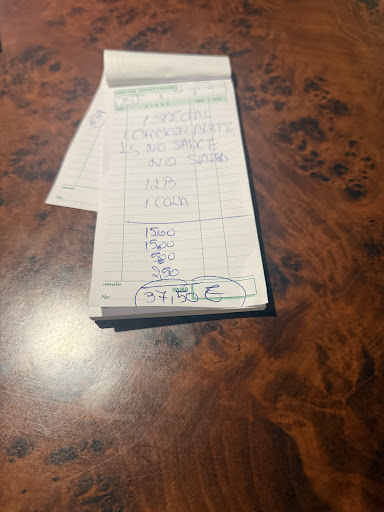 1 SPECIAL
CHICKEN PLATE
NO SAUCE
NO SALAD
1 COLA
1500
1500
500
250
37,50 €
No